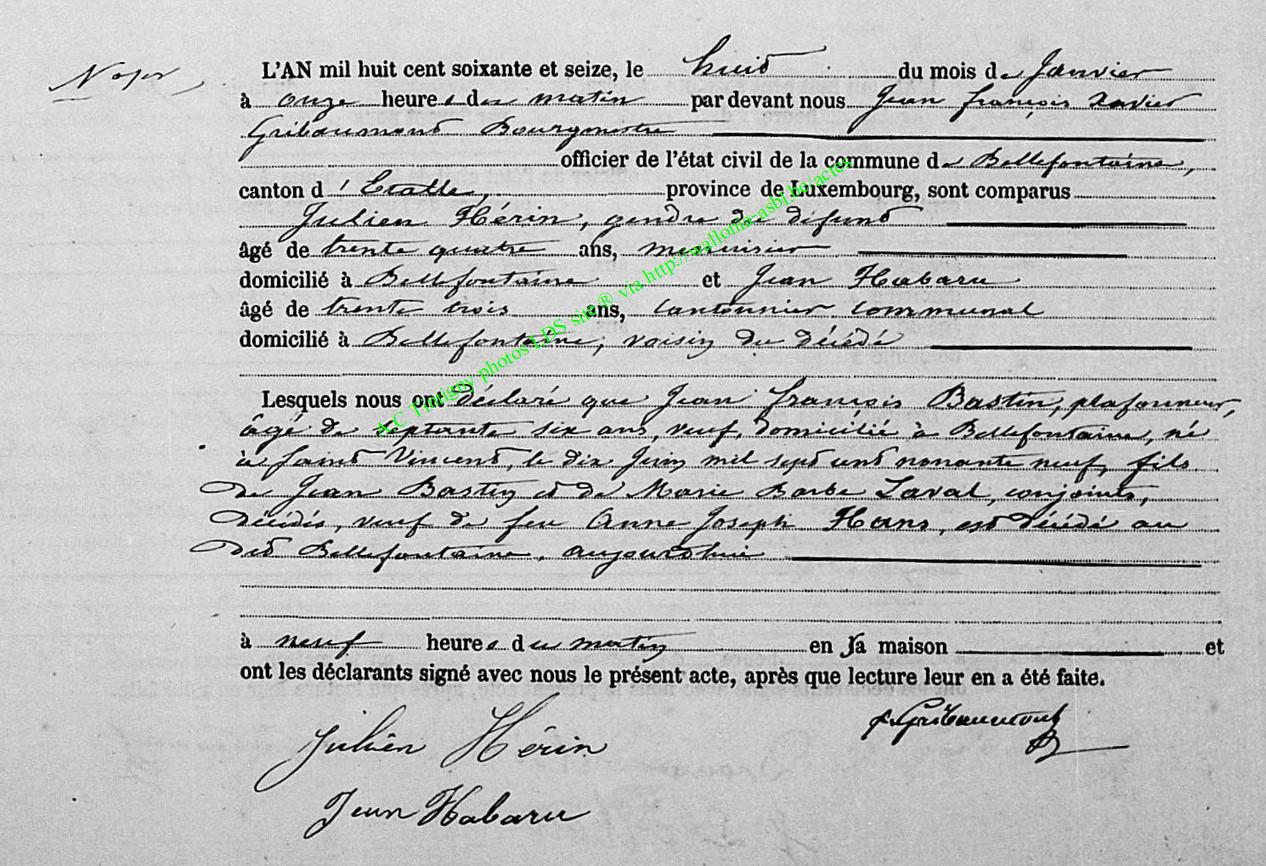 L'AN mil huit cent soixante et seize, le huit du mois de Janvier
à onze heures du matin par devant nous Jean François Xavier
Gribaumont Bourgmestre
officier de l'état civil de la commune de Bellefontaine,
canton d'Etalle, province de Luxembourg, sont comparus
Julien Hérin, gendre du défunt
âgé de trente quatre ans, menuisier
domicilié à Bellefontaine et Jean Habaru
âgé de trente trois ans, cantonnier communal
domicilié à Bellefontaine, voisin du décédé
Lesquels nous ont déclaré que Jean François Bastin, plafonneur,
âgé de septante six ans, veuf, domicilié à Bellefontaine, né
à Saint Vincent, le dix Juin mil sept cent nonante neuf, fils
de Jean Bastin et de Marie Barbe Laval, conjoints,
décédés, veuf de feu Anne Joseph Hans, est décédé au
dit Bellefontaine, aujourd'hui
à neuf heures du matin en sa maison et
ont les déclarants signé avec nous le présent acte, après que lecture leur en a été faite.
Julien Hérin
Jean Habaru
Gribaumont
A.C Tintigny photos LDS site® via http://wallonia.asbl.be/actes